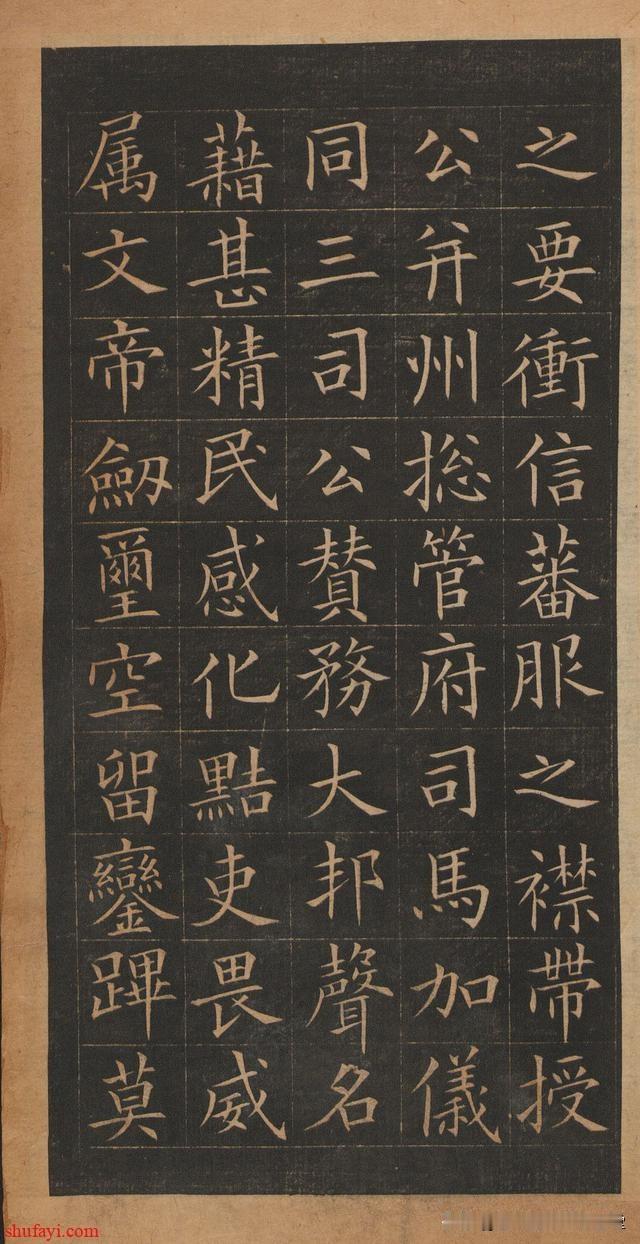 之要衝信蕃服之襟帶授
公并州総管府司馬加儀
同三司公賛務大邦聲名
藉甚精民感化黠吏畏威
属文帝劔璽空留鑾蹕莫
shufayi.com